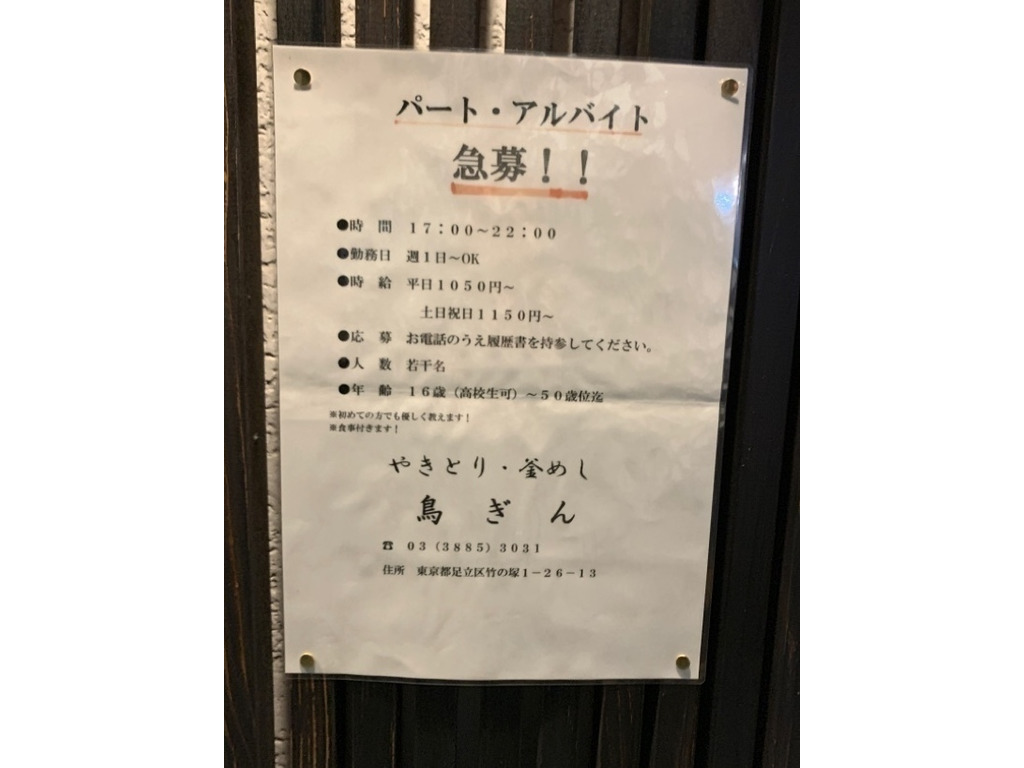 パート・アルバイト
急募！！
●時　間　１７：００～２２：００
●勤務日　週１日～OK
●時　給　平日１０５０円～
土日祝日１１５０円～
●応　募　お電話のうえ履歴書を持参してください。
●人　数　若干名
●年　齢　１６歳（高校生可）～５０歳位迄
※初めての方でも優しく教えます！
※食事付きます！
やきとり・釜めし
鳥　ぎ　ん
☎　０３（３８８５）３０３１
住所　東京都足立区竹の塚１－２６－１３